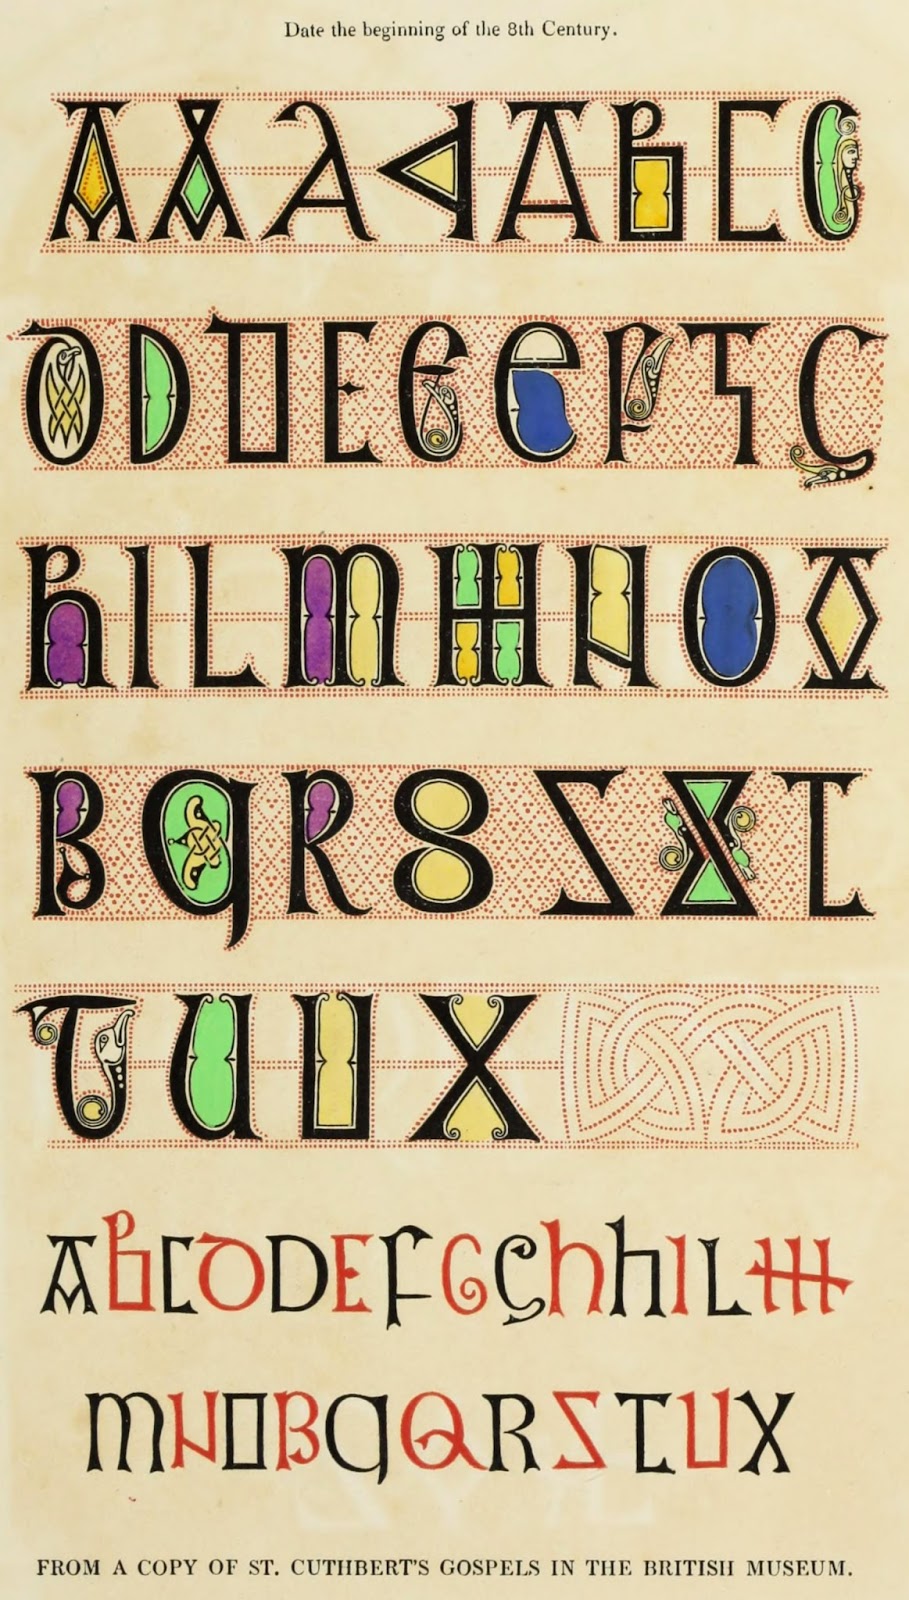 Date the beginning of the 8th Century.
AAAAABCC
DDDEEEFGG
HILMMNOO
PQRSSST
TUUX
ABCDDEFGGhhILM
MNOPQQRSTUX
FROM A COPY OF ST. CUTHBERT'S GOSPELS IN THE BRITISH MUSEUM.